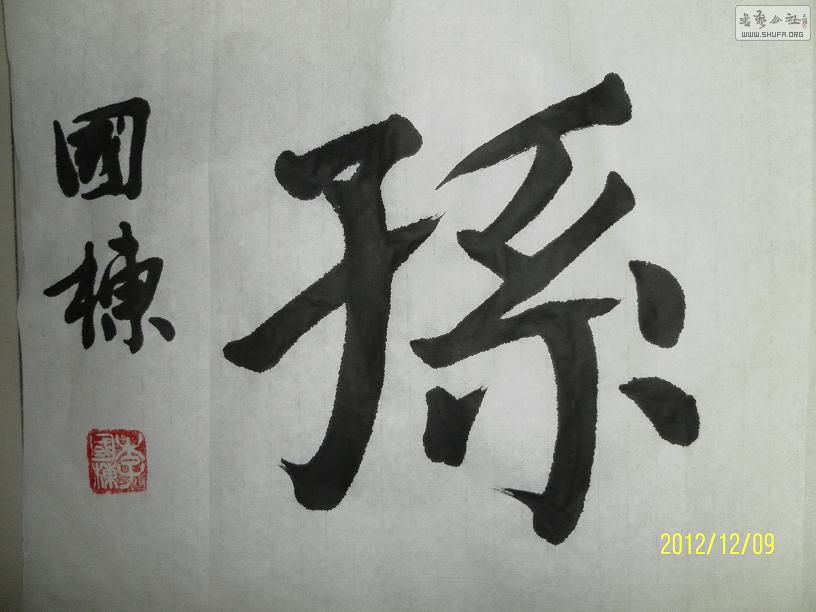 孫
國棟
李國棟
書藝公社
WWW.SHUFA.ORG
2012/12/09